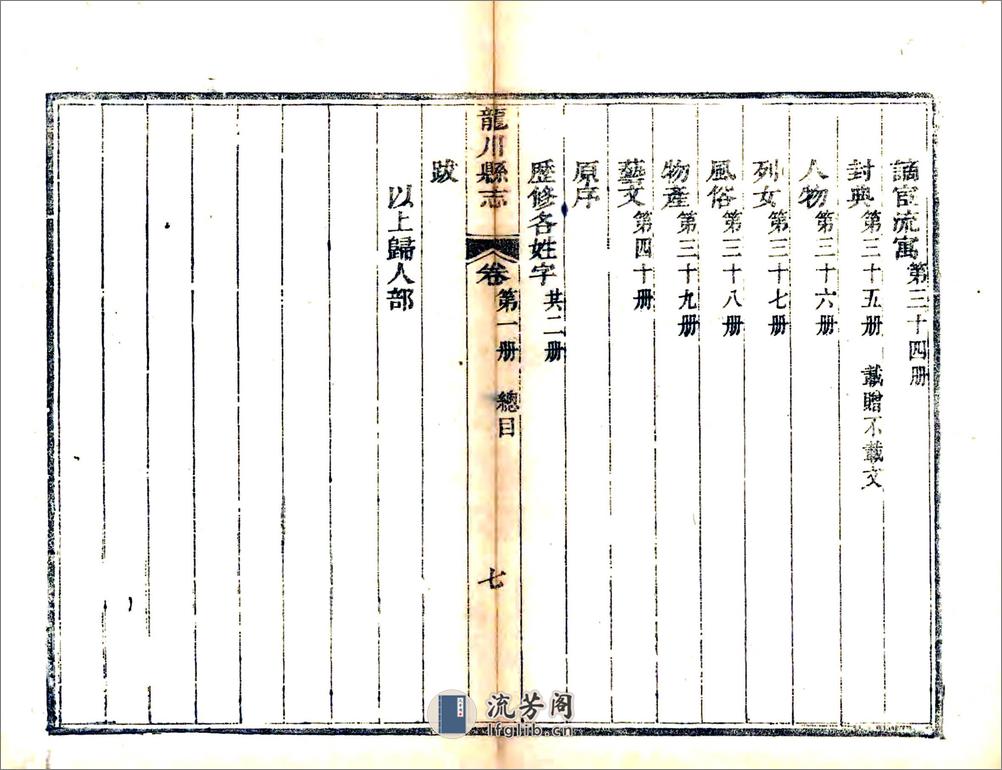 謫宦流寓 第三十四册
封典 第三十五册 載贈不載文
人物 第三十六册
列女 第三十七册
風俗 第三十八册
物產 第三十九册
藝文 第四十册
原序
歷修各姓字 共二册
龍川縣志 卷 第一册 總目 七
跋
以上歸人部
流芳阁
lfglib.cn